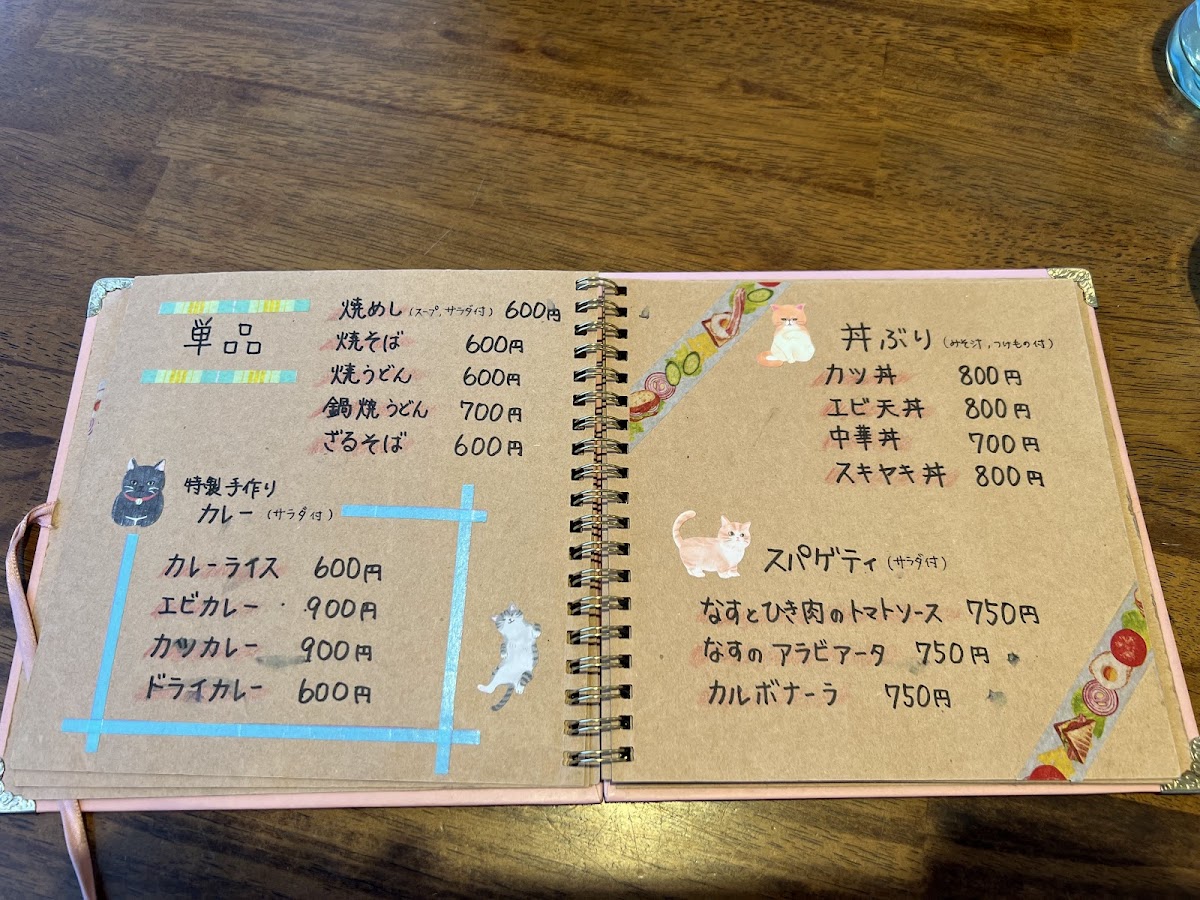 単品
焼めし (スープ、サラダ付) 600円
焼そば 600円
焼うどん 600円
鍋焼うどん 700円
ざるそば 600円
特製手作り
カレー (サラダ付)
カレーライス 600円
エビカレー 900円
カツカレー 900円
ドライカレー 600円
丼ぶり (みそ汁、つけもの付)
カツ丼 800円
エビ天丼 800円
中華丼 700円
スキヤキ丼 800円
スパゲティ (サラダ付)
なすとひき肉のトマトソース 750円
なすのアラビアータ 750円
カルボナーラ 750円